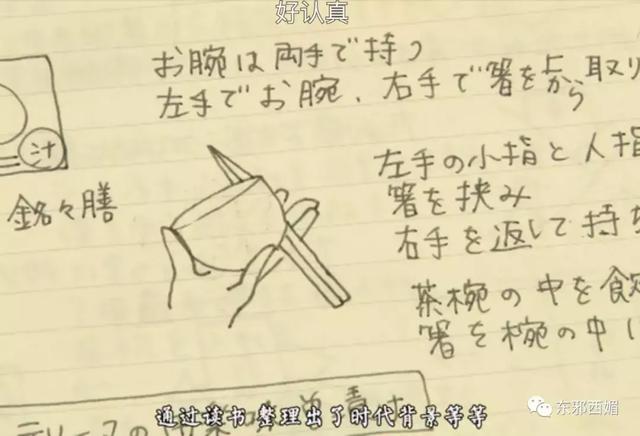 好认真
お腕は両手で持つ
左手でお腕、右手で箸を上から取り
汁
左手の小指と人指
銘々膳
箸を挟み
右手を返して持ち
茶椀の中を飲
箸を椀の中に
通过读书 整理出了时代背景等等
东邪西媚